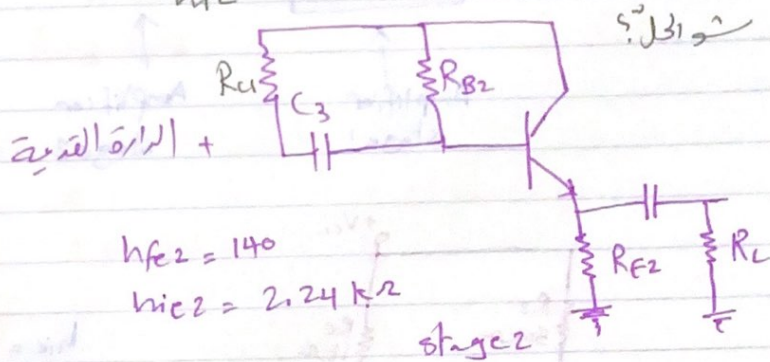 شو الحل؟
RC1
C3
RB2
+ الدارة القديمة
hfe2 = 140
hie2 = 2.24 kΩ
RE2
RL
stage 2